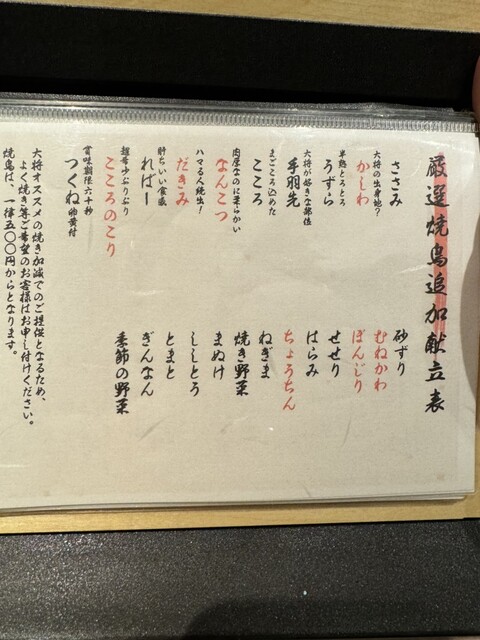 厳選焼鳥追加献立表
ささみ
大将の出身地?
かしわ
半熟とろとろ
うずら
大将が好きな部位
手羽先
まごころ込めた
こころ
肉厚なのに柔らかい
なんこつ
ハマる人続出!
だきみ
肝ちいい食感
ればー
超希少ぷりぷり
こころのこり
賞味期限六十秒
つくね 卵黄付
砂ずり
むねかわ
ぼんじり
せせり
はらみ
ちょうちん
ねぎま
焼き野菜
まぬけ
ししとう
とまと
ぎんなん
季節の野菜
大将オススメの焼き加減でのご提供となるため、
よく焼き等ご希望のお客様はお申し付けください。
焼鳥は、一律五〇〇円からとなります。